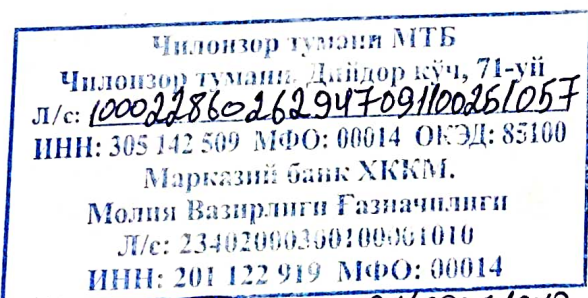 Чилонзор тумани МТБ
Чилонзор тумани. Дийдор кўч, 71-уй
Л/с: 100022860262947091100261057
ИНН: 305 142 509 МФО: 00014 ОКЭД: 85100
Марказий банк ХККМ.
Молия Вазирлиги Ғазначилиги
Л/с: 23402000300100001010
ИНН: 201 122 919 МФО: 00014